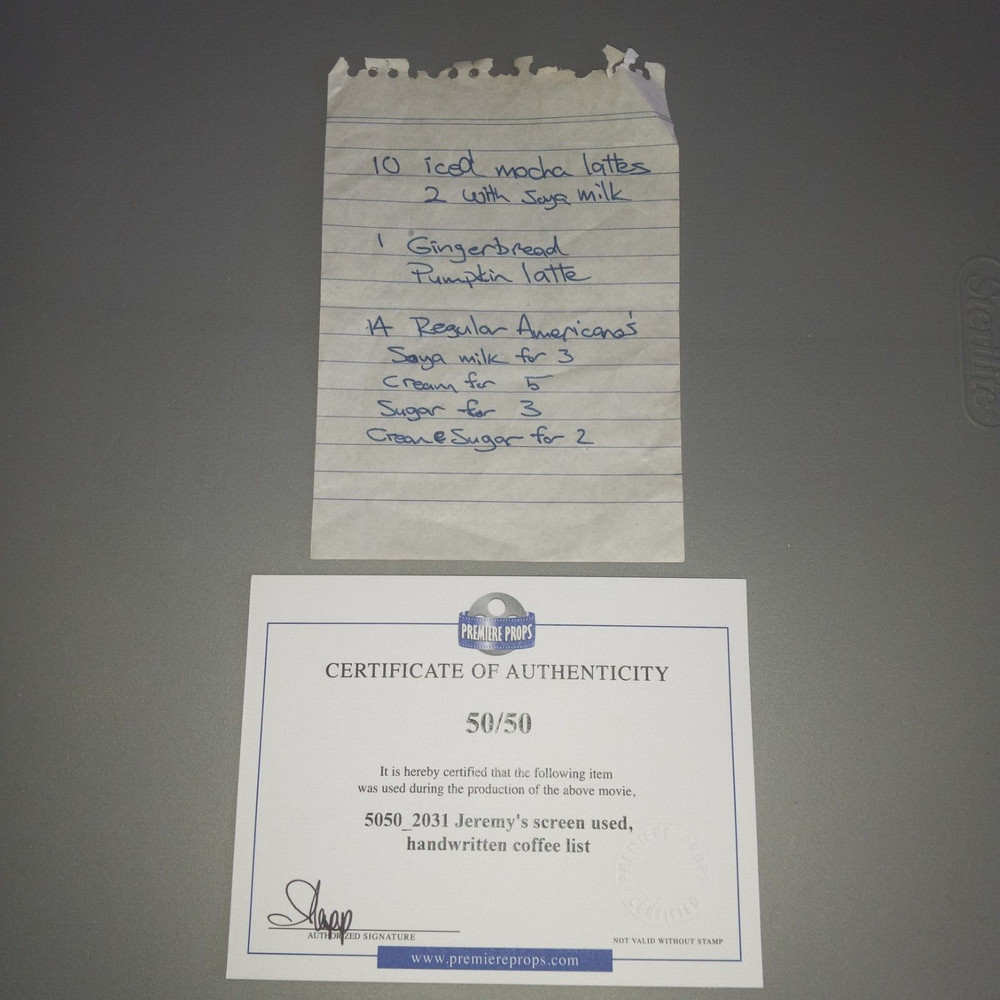 10 iced mocha lattes
2 with Soya milk
1 Gingerbread
Pumpkin latte
14 Regular Americano's
Soya milk for 3
Cream for 5
Sugar for 3
Cream & Sugar for 2
Sterilite
PREMIERE PROPS
CERTIFICATE OF AUTHENTICITY
50/50
It is hereby certified that the following item
was used during the production of the above movie,
5050_2031 Jeremy's screen used,
handwritten coffee list
CERTIFIED
AUTHORIZED SIGNATURE
NOT VALID WITHOUT STAMP
www.premiereprops.com